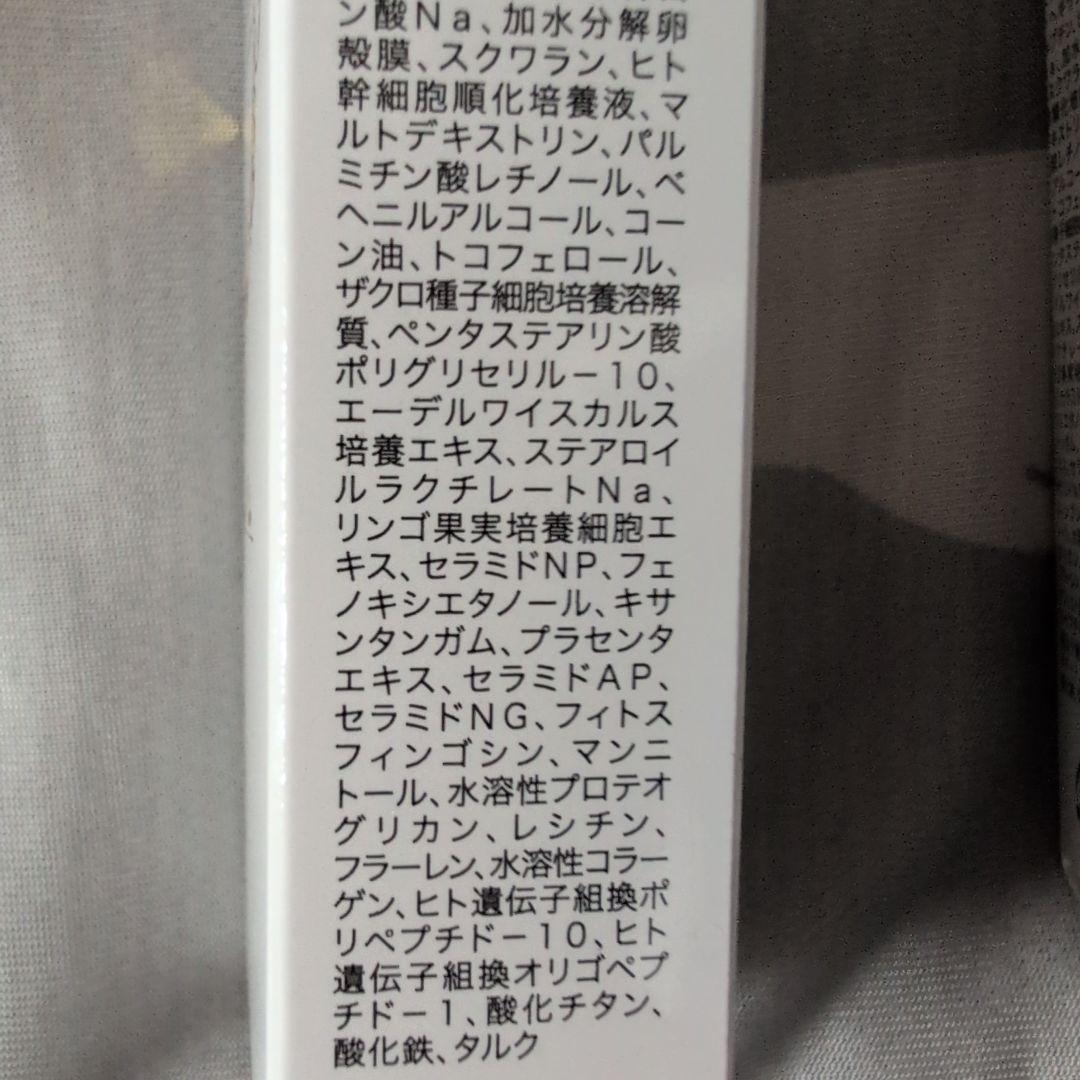 ン酸Na、加水分解卵
殻膜、スクワラン、ヒト
幹細胞順化培養液、マ
ルトデキストリン、パル
ミチン酸レチノール、ベ
ヘニルアルコール、コー
ン油、トコフェロール、
ザクロ種子細胞培養溶解
質、ペンタステアリン酸
ポリグリセリルー10、
エーデルワイスカルス
培養エキス、ステアロイ
ルラクチレートNa、
リンゴ果実培養細胞エ
キス、セラミドNP、フェ
ノキシエタノール、キサ
ンタンガム、プラセンタ
エキス、セラミドAP、
セラミドNG、フィトス
フィンゴシン、マンニ
トール、水溶性プロテオ
グリカン、レシチン、
フラーレン、水溶性コラー
ゲン、ヒト遺伝子組換ポ
リペプチドー10、ヒト
遺伝子組換オリゴペプ
チドー1、酸化チタン、
酸化鉄、タルク